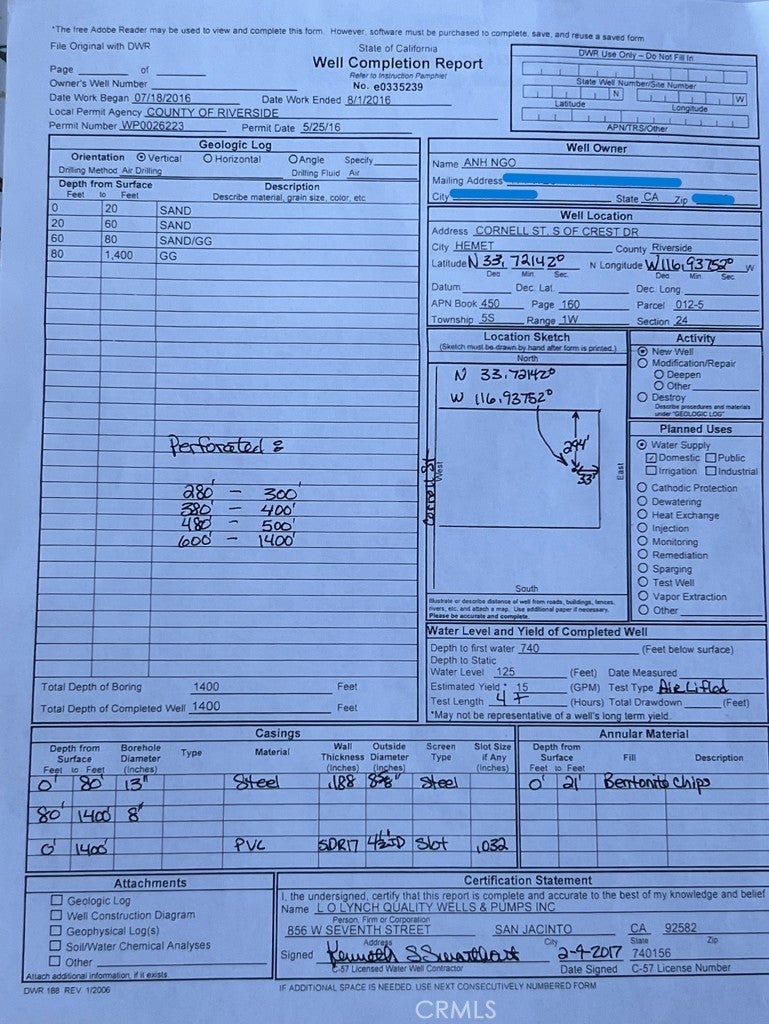 *The free Adobe Reader may be used to view and complete this form. However, software must be purchased to complete, save, and reuse a saved form
File Original with DWR
State of California
Well Completion Report
Refer to Instruction Pamphlet
No. e0335239
Page of
Owner's Well Number
Date Work Began 07/18/2016 Date Work Ended 8/1/2016
Local Permit Agency COUNTY OF RIVERSIDE
Permit Number WP0026223 Permit Date 5/25/16
DWR Use Only – Do Not Fill In
State Well Number/Site Number
N W
Latitude Longitude
APN/TRS/Other
Geologic Log
Orientation Vertical Horizontal Angle Specify
Drilling Method Air Drilling Drilling Fluid Air
Depth from Surface Description
Feet to Feet Describe material, grain size, color, etc
0 20 SAND
20 60 SAND
60 80 SAND/GG
80 1,400 GG
Perforated :
280' – 300'
380' – 400'
480' – 500'
600' – 1400'
Total Depth of Boring 1400 Feet
Total Depth of Completed Well 1400 Feet
Well Owner
Name ANH NGO
Mailing Address
City State CA Zip
Well Location
Address CORNELL ST, S OF CREST DR
City HEMET County Riverside
Latitude N 33.72142° N Longitude W116.93752° W
Deg Min. Sec. Deg Min. Sec.
Datum Dec. Lat. Dec. Long.
APN Book 450 Page 160 Parcel 012-5
Township 5S Range 1W Section 24
Location Sketch
(Sketch must be drawn by hand after form is printed.)
North
N 33.72142°
W 116.93752°
294'
33'
Cornell St.
West
East
South
Illustrate or describe distance of well from roads, buildings, fences,
rivers, etc. and attach a map. Use additional paper if necessary.
Please be accurate and complete.
Activity
New Well
Modification/Repair
Deepen
Other
Destroy
Describe procedures and materials
under "GEOLOGIC LOG"
Planned Uses
Water Supply
Domestic Public
Irrigation Industrial
Cathodic Protection
Dewatering
Heat Exchange
Injection
Monitoring
Remediation
Sparging
Test Well
Vapor Extraction
Other
Water Level and Yield of Completed Well
Depth to first water 740 (Feet below surface)
Depth to Static
Water Level 125 (Feet) Date Measured
Estimated Yield * 15 (GPM) Test Type Air Lifted
Test Length 4 + (Hours) Total Drawdown (Feet)
*May not be representative of a well's long term yield.
Casings
Depth from Surface Feet to Feet Borehole Diameter (Inches) Type Material Wall Thickness (Inches) Outside Diameter (Inches) Screen Type Slot Size if Any (Inches)
0' 80' 13" Steel .188 8⅝" Steel
80' 1400' 8"
0' 1400' PVC SDR17 4½ID Slot .032
Annular Material
Depth from Surface Feet to Feet Fill Description
0' 21' Bentonite Chips
Attachments
Geologic Log
Well Construction Diagram
Geophysical Log(s)
Soil/Water Chemical Analyses
Other
Attach additional information, if it exists.
Certification Statement
I, the undersigned, certify that this report is complete and accurate to the best of my knowledge and belief
Name L O LYNCH QUALITY WELLS & PUMPS INC
Person, Firm or Corporation
856 W SEVENTH STREET SAN JACINTO CA 92582
Address City State Zip
Signed 2-4-2017 740156
C-57 Licensed Water Well Contractor Date Signed C-57 License Number
DWR 188 REV. 1/2006
IF ADDITIONAL SPACE IS NEEDED, USE NEXT CONSECUTIVELY NUMBERED FORM
CRMLS